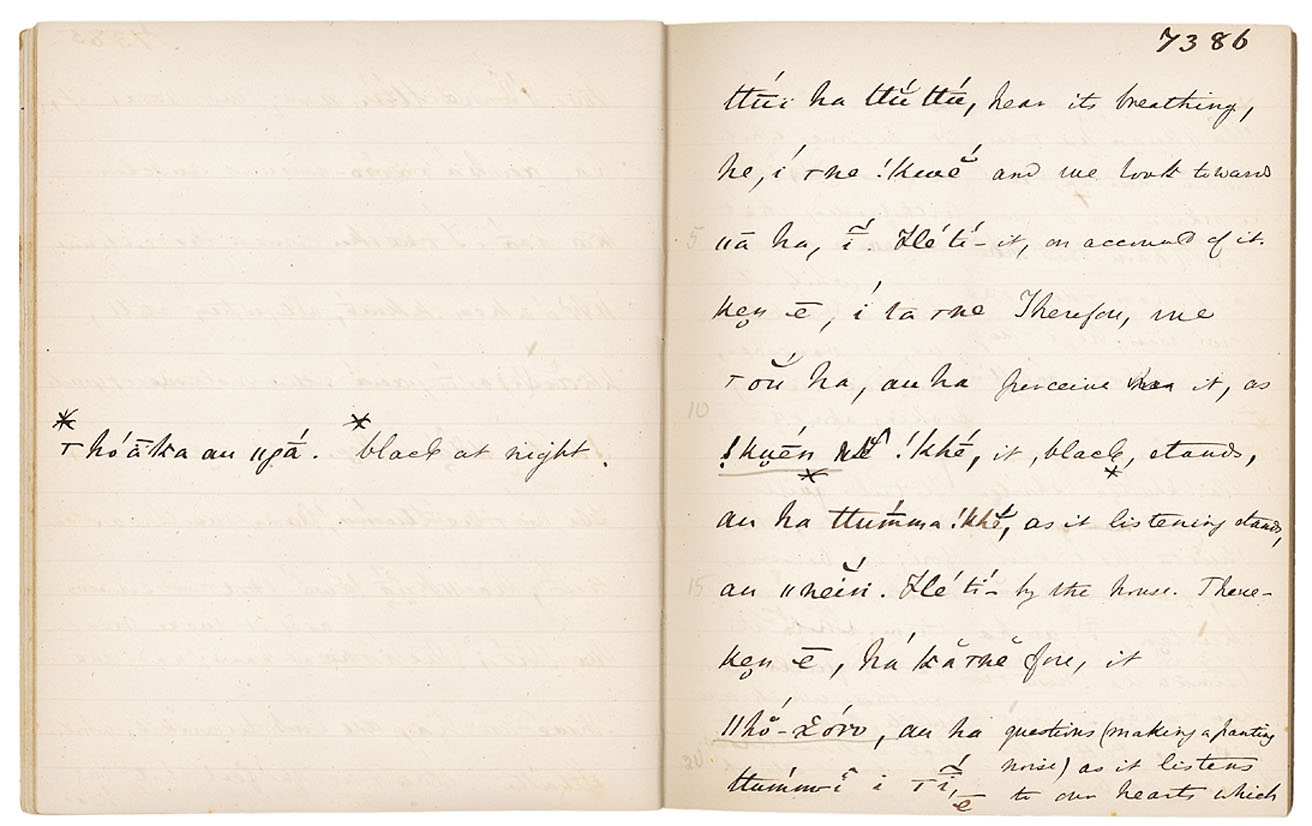 *
Thóāka au ǁgá. * black at night.
7386
ttúi ha ttú ttú, hear its breathing,
he, í ꞇne !kwé̆ and we look toward
5 ǁā ha, ī́. Hé tí- it, on account of it.
ken̥ ē, í ta ꞇne Therefore, we
ꞇóŭ ha, au ha perceive it, as
10
!kuḗn !khé, it, black, stands,
* *
au ha ttúmma !khé, as it listening stands,
15 au ǁnéĭn. Hé tí- by the house. There-
ken̥ ē, há kă ꞇnĕ fore, it
ǁhó-xóro, au ha questions (making a panting
20 ttúmm-ĭ i ꞇī́, ē noise) as it listens
to our hearts which